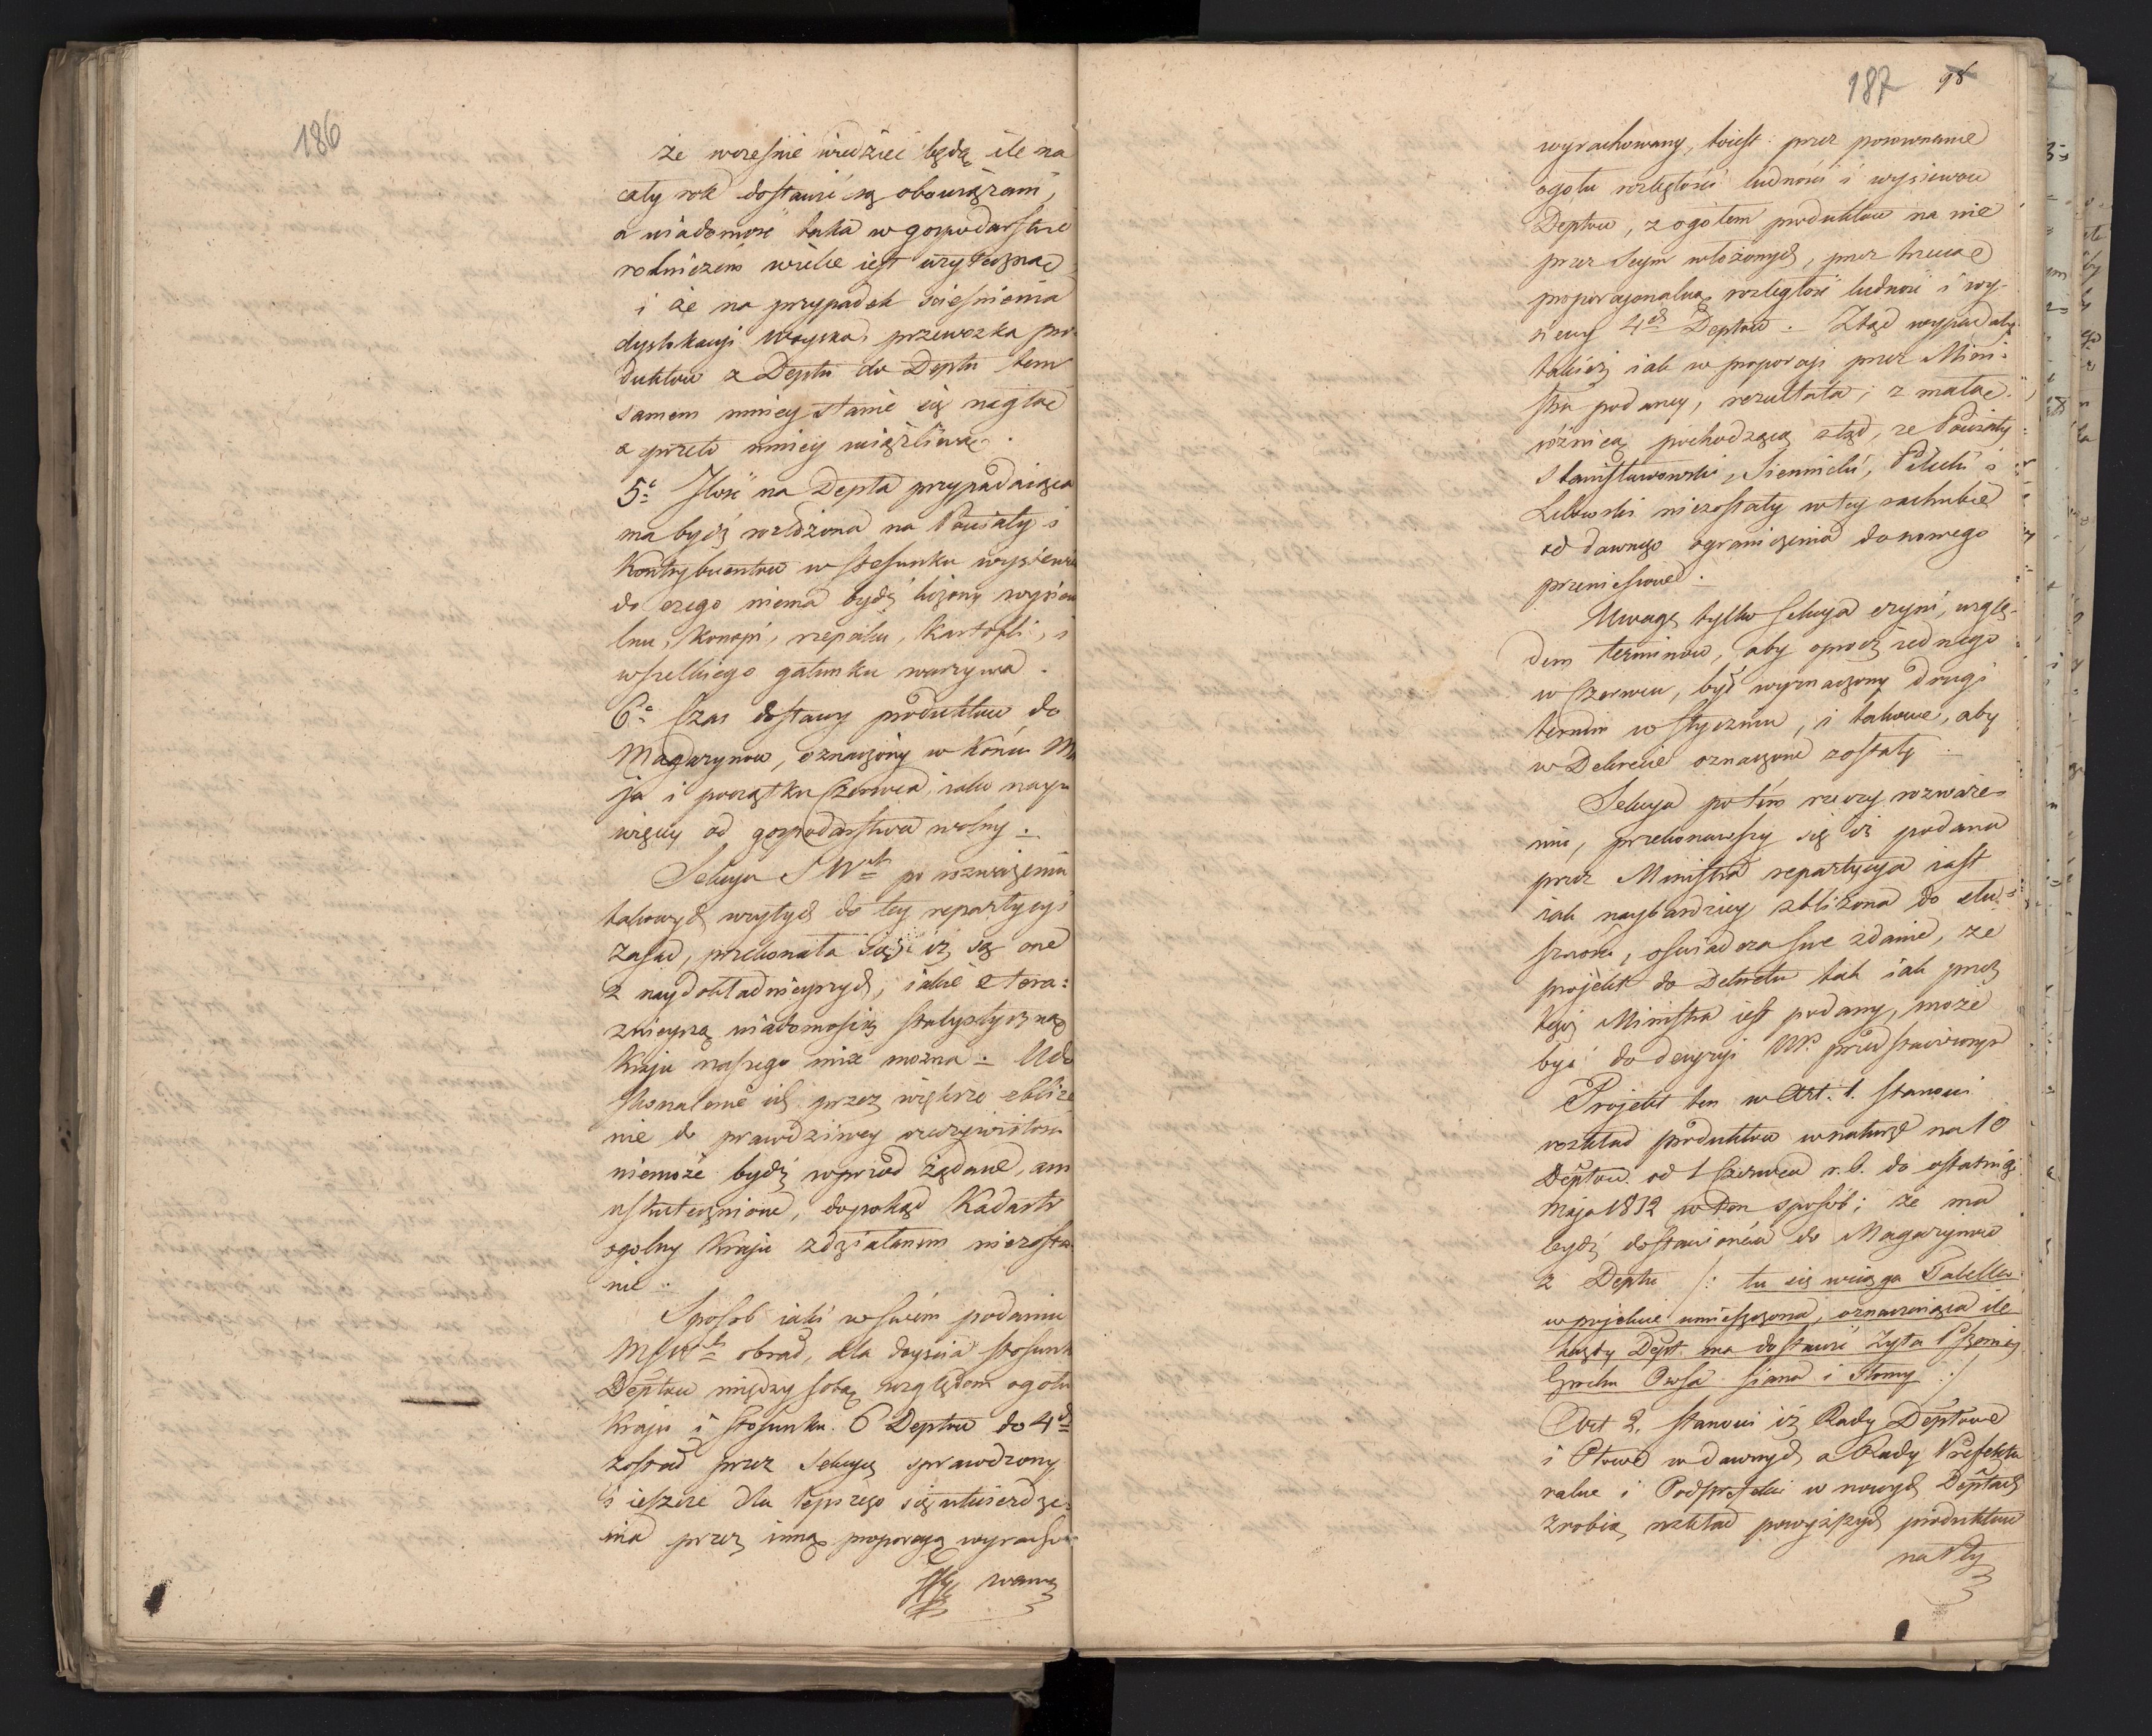 186
że wcześnie wiedzieć będą ile na
cały rok dostawić są obowiązani,
a wiadomość taka w gospodarstwie
rolniczém wielce iest użyteczna
i że na przypadek ścieśnienia
dyslokacyi Woyska, przewozka pro
duktow z Deptu do Deptu tem
samem mniey stanie się nagłą
a przeto mniey uciążliwą.
5e Ilość na Depta przypadaiąca
ma bydź rozłożona na Powiaty i
Kontrybuentow w stosunku wysiewu
do czego niema bydź liczony wysiew
lnu, Konopi, rzepaku, Kartofli, i
wszelkiego gatunku warzywa.
6e Czas dostawy produktow do
Magazynow, oznaczony w Końcu Ma
ja i początku Czerwca, iako nay
więcey od gospodarstwa wolny.
Sekcya S Wch po rozważeniu
takowych wziętych do tey repartycyi
Zasad, przekonała się iż są one
z naydokładnieyszych, iakie z tera=
znieyszą wiadomością statystyczną
Kraju naszego mieć można. Udo
skonalenie ich przez większe zbliże
nie do prawdziwey rzeczywistości
niemoże bydź wprzód żądane, ani
uskutecznione, dopokąd Kadastr
ogolny Kraju zdziałanym niezosta
nie.
Sposob iaki w swém podaniu
MSWch obrał, dla doyścia stosunk
Deptow między sobą względem ogołu
Kraju i stosunku 6 Deptow do 4ch
został przez Sekcyą sprawdzony
i ieszcze dla lepszego się utwierdze=
nia przez inną proporcyą wyracho
waną
187 98
wyrachowany, toiest: przez porownanie
ogołu rozległości ludności i wysiewou
Deptow, z ogołem produktow na nie
przez Seym włożonych, przez trzecią
proporcyonalną rozległość ludność i wy-
siewy 4ch Deptow. Ztąd wypadały
takież iak w proporcyi przez Mini=
stra podaney, rezultata, z małą
różnicą pochodzącą ztąd, że Powiaty
Stanisławowski, Siennicki, i
niezostały w tey rachubie
od dawnego ograniczenia do nowego
przeniesione.
Uwagę tylko Sekcya czyni, wzglę-
dem terminow, aby oprocz iednego
w Czerwcu, był wyznaczony drugi
termin w Styczniu, i takowe, aby
w Dekrecie oznaczone zostały.
Sekcya po tém rzeczy rozważe=
niu, przekonawszy się iż podana
przez Ministra repartycya iest
iak naybardziey zbliżona do słu=
szności, oświadcza swe zdanie, że
projekt do Dekretu tak iak przez
tegoż Ministra iest podany, może
być do decyzyi NP. przedstawionym
Projekt ten w Art. 1. Stanowi
rozkład produktow w naturze na 10
Deptow od 1 Czerwca r.b. do ostatniego
Maja 1812 w ten sposób; że ma
bydź dostawioném do Magazynow
z Deptu /: tu się wciąga Tabella
w projekcie umieszczona, oznaczaiąca ile
każdy Dept ma dostawić Żyta Pszenicy
Grochu Owsa Siana i Słomy :/
Art 2. Stanowi iż Rady Deptowe
i Ptowe w dawnych a Rady Prefektu
ralne i Podprefekci w nowych Deptach
zrobią rozkład powyższych produktow
na Pty